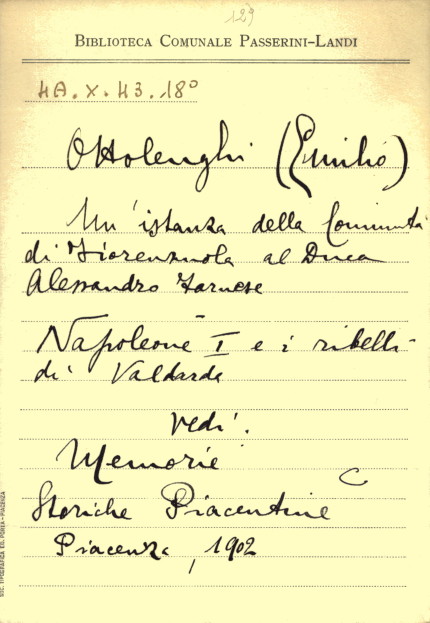 129
BIBLIOTECA COMUNALE PASSERINI-LANDI
4A.X.43.18°
Ottolenghi (Emilio)
Un'istanza della Comunità
di Fiorenzuola al Duca
Alessandro Farnese
Napoleone I e i ribelli
di Valdarda
Vedi.
Memorie
Storiche Piacentine
Piacenza, 1902